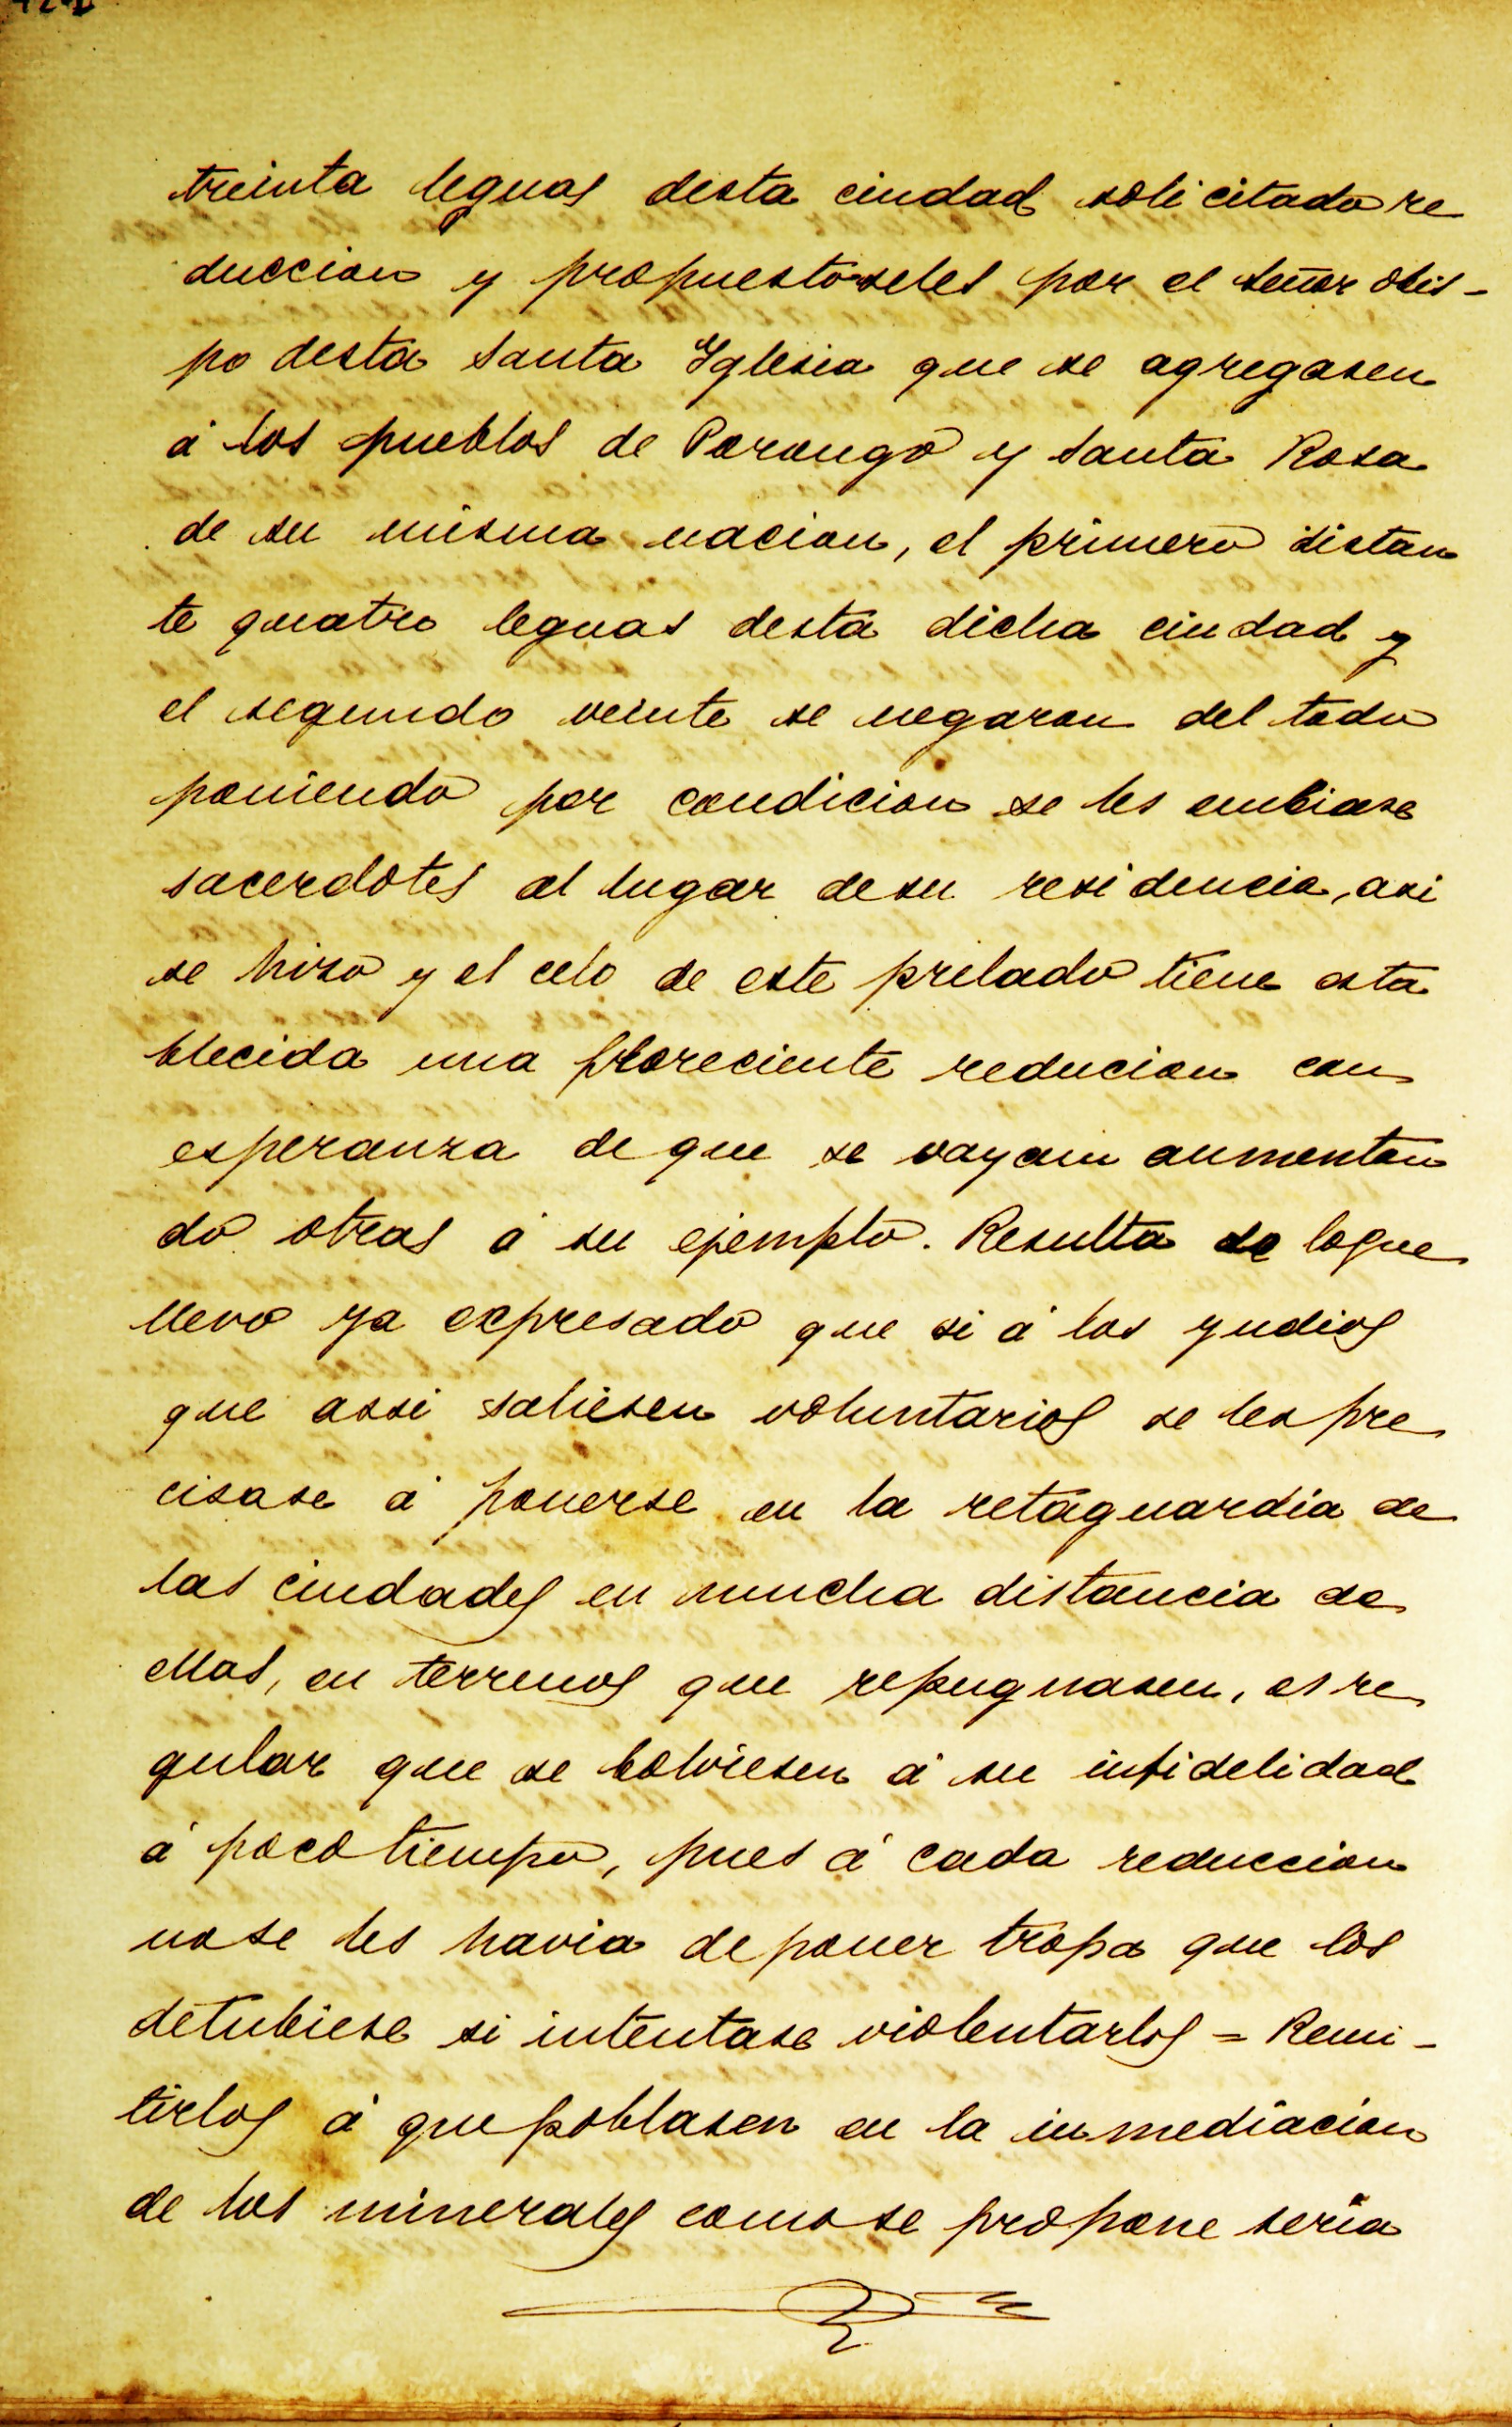 treinta leguas desta ciudad solicitado re
duccion y propuestoseles por el señor obis-
po desta santa Yglesia que se agregasen
á los pueblos de Porongo y santa Rosa
de su misma nacion, el primero distan
te quatro leguas desta dicha ciudad y
el segundo veinte se negaron del todo
poniendo por condicion se les embiase
sacerdotes al lugar de su residencia, asi
se hizo y el celo de este prelado tiene esta
blecida una floreciente reducion con
esperanza de que se vayan aumentan
do otras á su ejemplo. Resulta de loque
llevo ya expresado que si á los yndios
que assi saliesen voluntarios se les pre
cisase á ponerse en la retaguardia de
las ciudades en mucha distancia de
ellas, en terrenos que repugnasen, es re
gular que se bolviesen á su infidelidad
á poco tiempo, pues á cada reduccion
nose les havia de poner tropa que los
detubiese si intentase violentarlos = Remi-
tirlos á que poblasen en la inmediacion
de los minerales como se propone seria